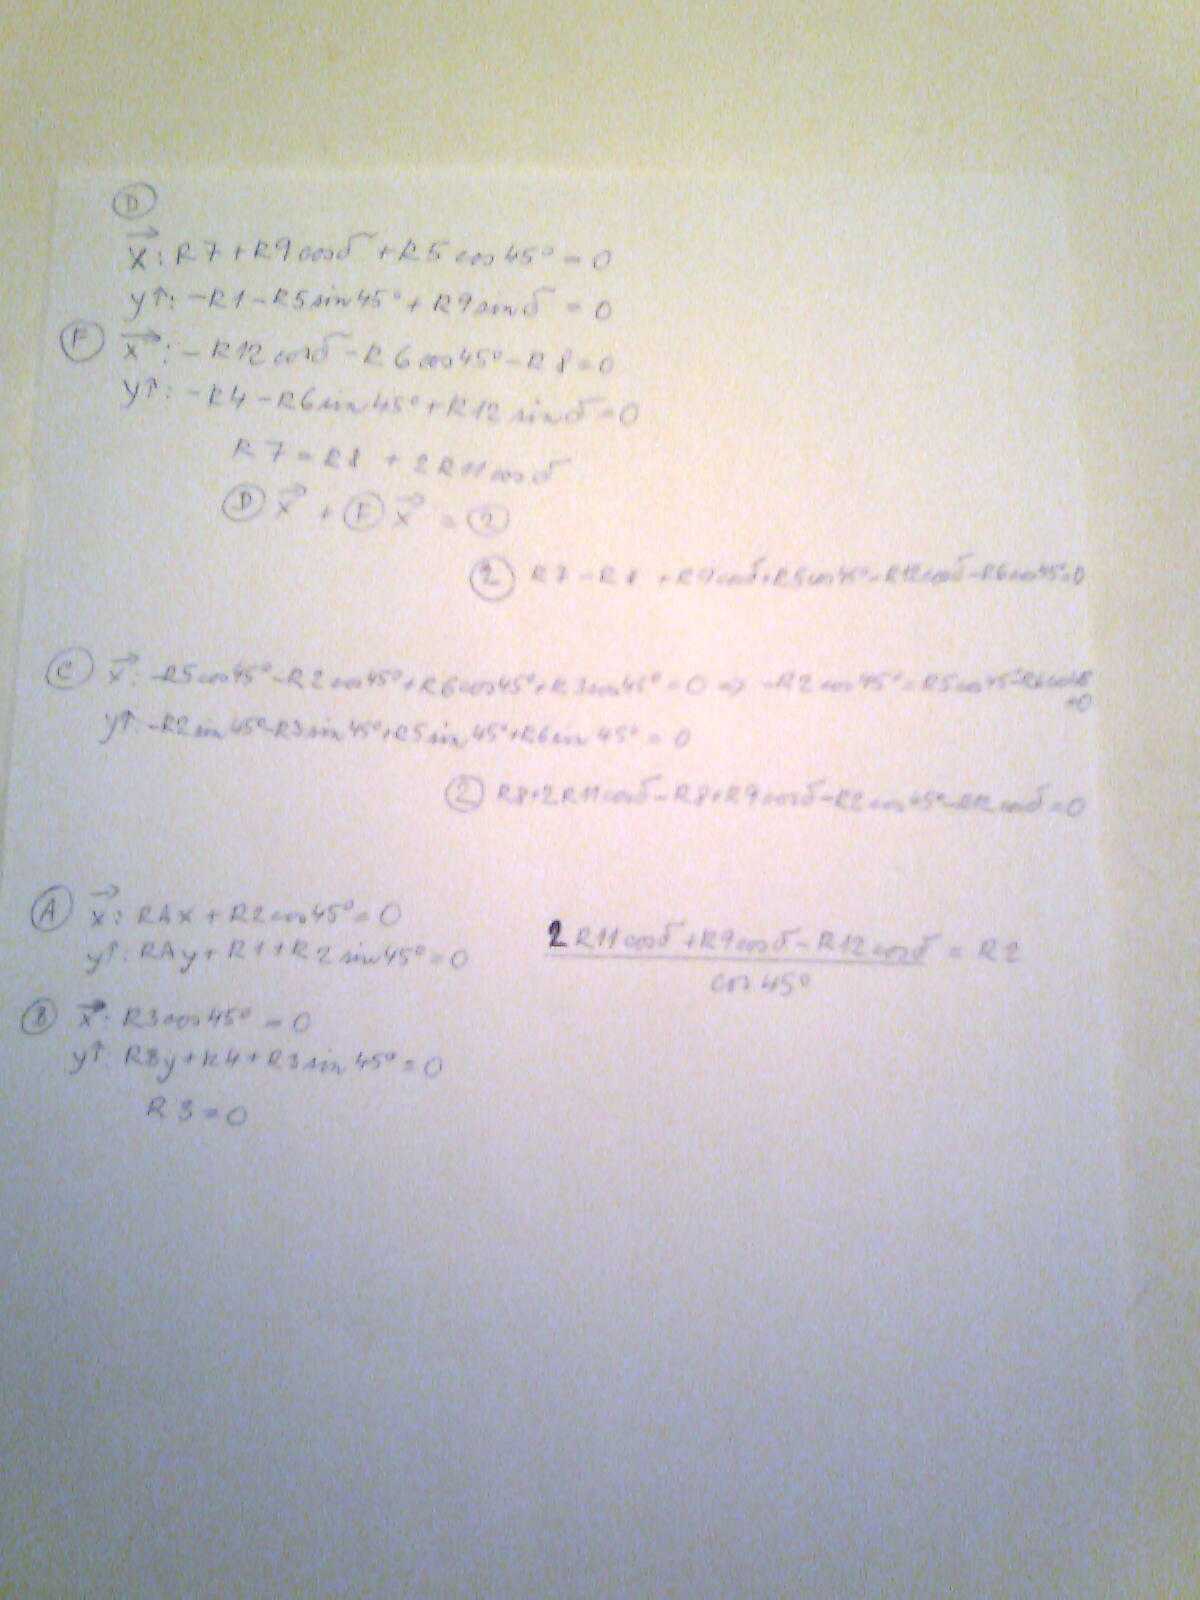 D
x: R7+R9cosδ+R5cos45°=0
y↑: -R1-R5sin45°+R9sinδ=0
F x: -R12cosδ-R6cos45°-R8=0
y↑: -R4-R6sin45°+R12sinδ=0
R7=R8+2R11cosδ
D x + F x = 2
2 R7-R8+R9cosδ+R5cos45°-R12cosδ-R6cos45°=0
C x: -R5cos45°-R2cos45°+R6cos45°+R3cos45°=0 => -R2cos45°=R5cos45°-R6cos45
=0
y↑: -R2sin45°-R3sin45°+R5sin45°+R6sin45°=0
2 R8+2R11cosδ-R8+R9cosδ-R2cos45°-R12cosδ=0
A x: RAx+R2cos45°=0
y↑: RAy+R1+R2sin45°=0
2R11cosδ+R9cosδ-R12cosδ = R2
cos45°
B x: R3cos45°=0
y↑: RBy+R4+R3sin45°=0
R3=0